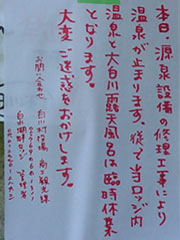 本日、源泉設備の修理工事により
温泉が止まります。従て当ロッジ内
温泉と大白川露天風呂は臨時休業
となります。
大変ご迷惑をおかけします。
お問い合わせ
白川村役場 商工観光課
白水湖畔ロッジ 管理者